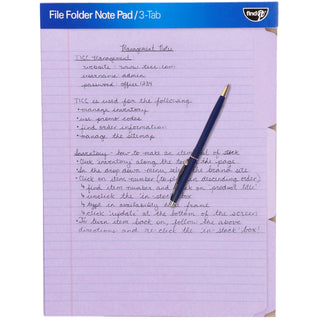 File Folder Note Pad / 3-Tab
find it
Management Notes
TICC Management
website - www.ticc.com
username admin
password office1234
TICC is used for the following:
• manage inventory
• use promo codes
• find order information
• manage the sitemap
Inventory - how to make an item out of stock
• Click inventory along the top of the page
• In the drop down menu, select the brand site
• Click on item number (to place in descending order)
↳ find item number and click on 'product title'
↳ unclick the 'in-stock' box
↳ type in availability time frame
↳ click 'update' at the bottom of the screen
• To turn item back on, follow the above
directions and re-click the 'in-stock' box!